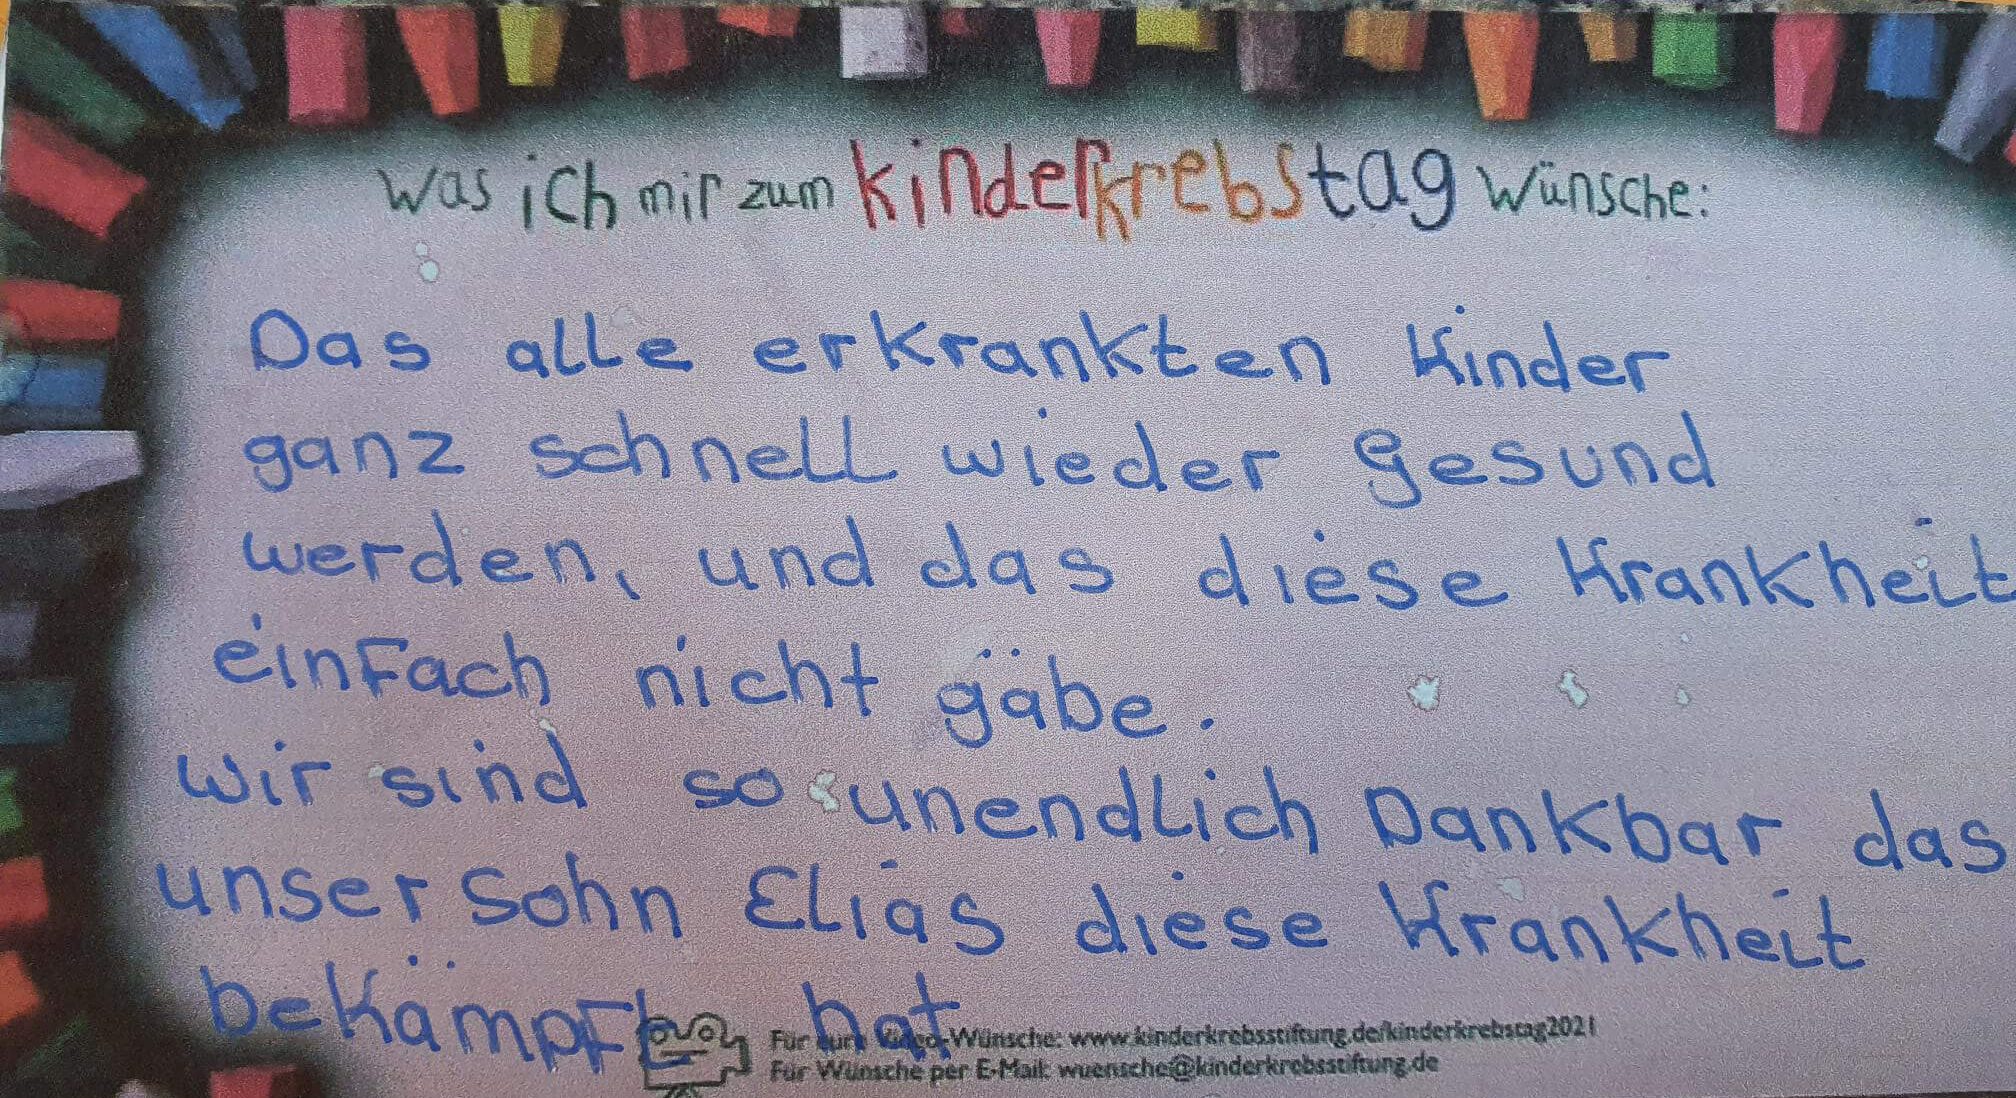 Was ich mir zum Kinderkrebstag wünsche:
Das alle erkrankten Kinder
ganz schnell wieder gesund
werden, und das diese Krankheit
einfach nicht gäbe.
Wir sind so unendlich Dankbar das
unser Sohn Elias diese Krankheit
bekämpft hat
Für eure Video-Wünsche: www.kinderkrebsstiftung.de/kinderkrebstag2021
Für Wünsche per E-Mail: wuensche@kinderkrebsstiftung.de